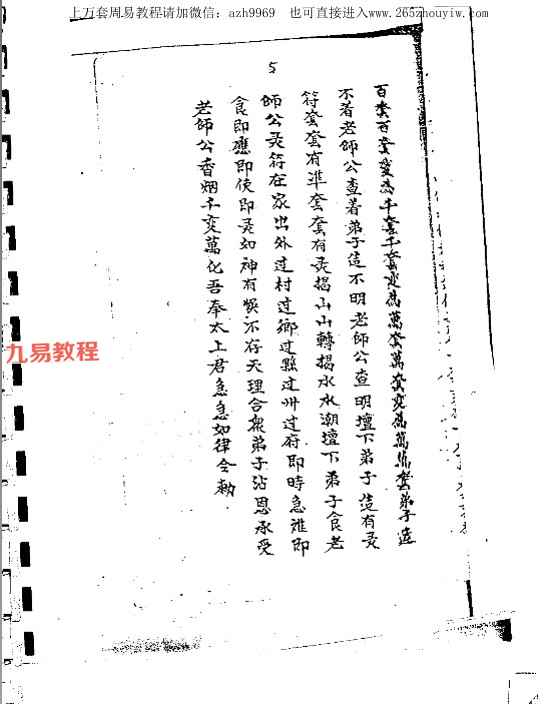 上万套周易教程请加微信：azh9969 也可直接进入www.265zhouyiw.com
5
百套百套变為千套千套变為萬套萬套变為萬萬套弟子造
不着老師公查着弟子造不明老師公查明壇下弟子造有灵
符套套有準套套有灵揭山山轉揭水水潮壇下弟子食老
師公灵符在家出外过村过鄉过縣过州过府即時急准即
食即應即使即灵如神有悞不存天理合眾弟子沾恩承受
老師公香烟千变萬化吾奉太上君急急如律令勅
九易教程